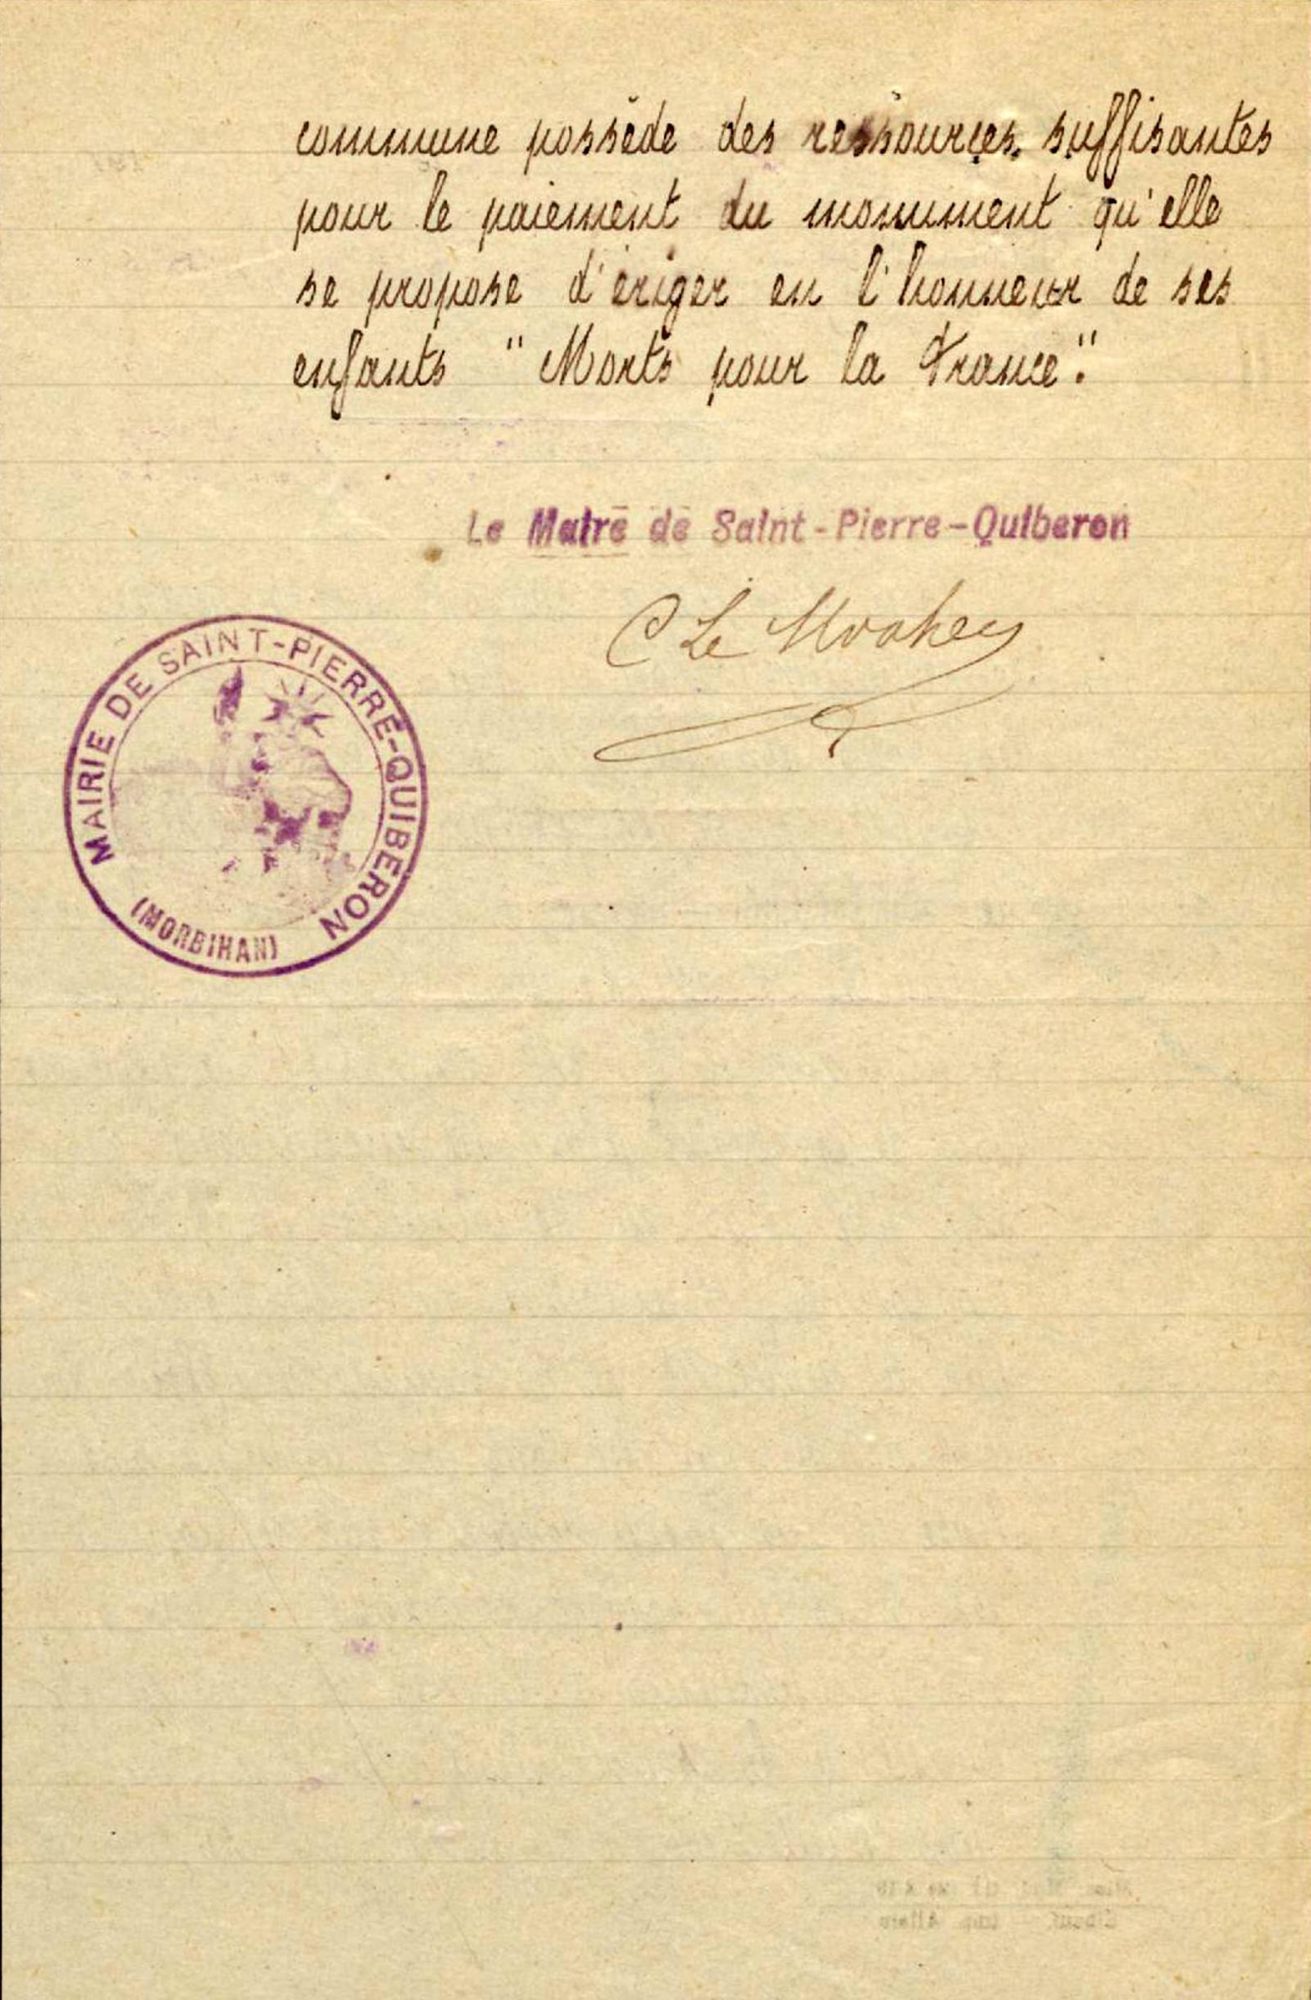 commune possède des ressources suffisantes
pour le paiement du monument qu'elle
se propose d'ériger en l'honneur de ses
enfants "Morts pour la France".
Le Maire de Saint-Pierre-Quiberon
C Le
MAIRIE DE SAINT-PIERRE-QUIBERON
(MORBIHAN)